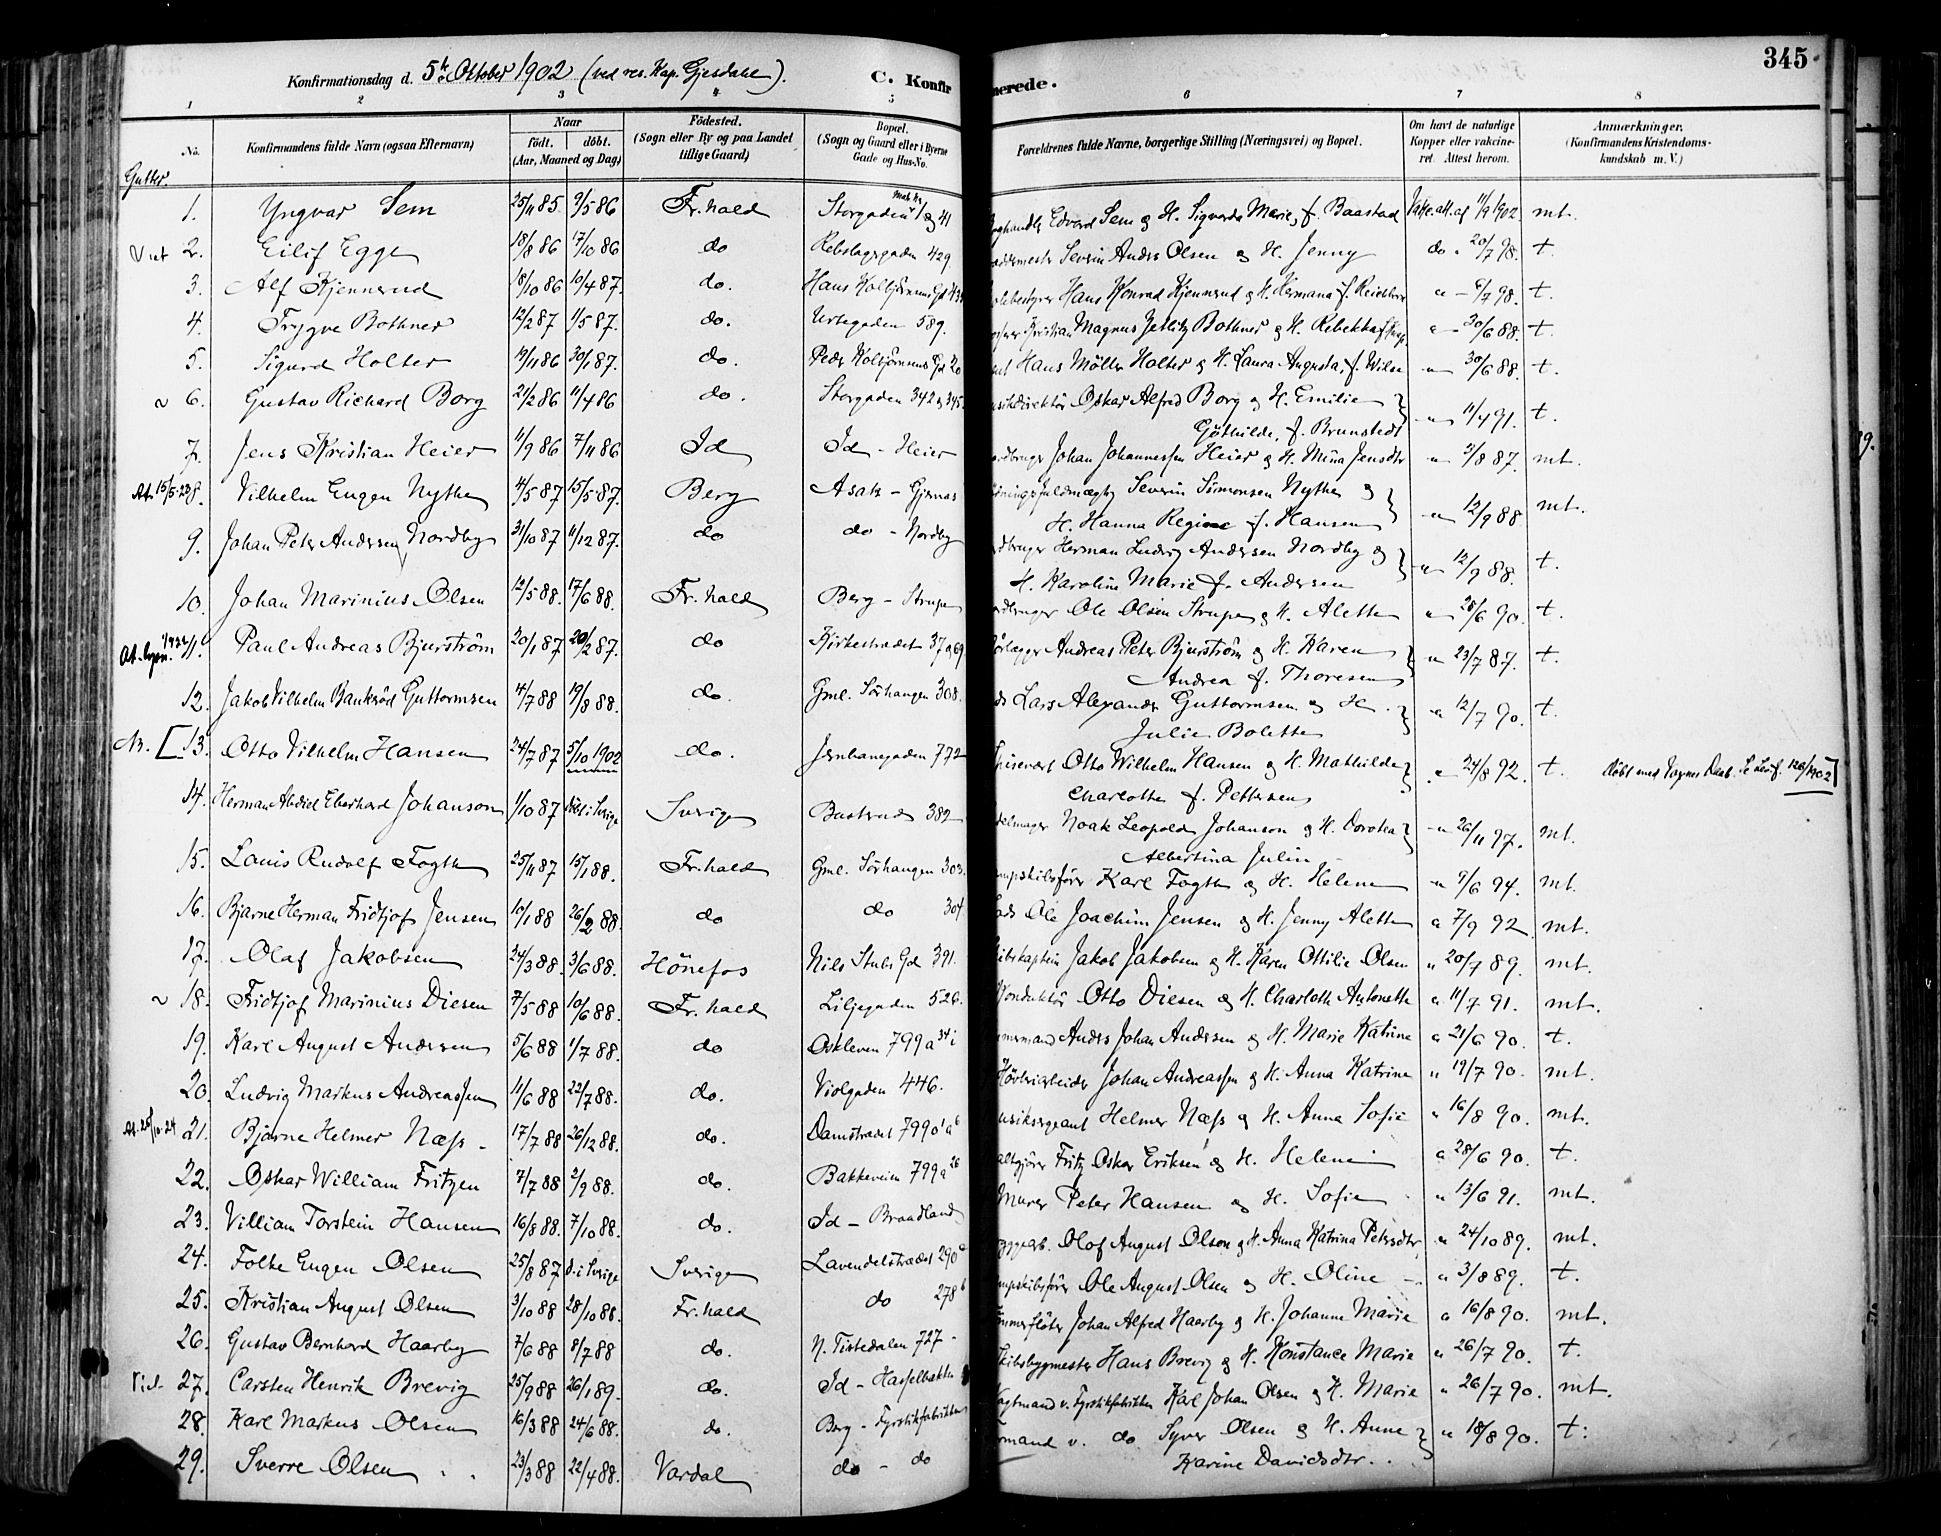 345
Konfirmationsdag d. 5te Oktober 1902 (ved res. Kap. Gjesdahl).
C. Konfirmerede.
1 2 3 4 5 6 7 8
No.
Konfirmandens fulde Navn (ogsaa Efternavn)
Naar
født. døbt.
(Aar, Maaned og Dag)
Fødested.
(Sogn eller By og paa Landet tillige Gaard)
Bopæl.
(Sogn og Gaard eller i Byerne Gade og Hus-No.
Forældrenes fulde Navne, borgerlige Stilling (Næringsvei) og Bopæl.
Om havt de naturlige Kopper eller vakcineret. Attest herom.
Anmærkninger.
(Konfirmandens Kristendomskundskab m. V.)
Gutter.
1. Yngvar Sem 25/11 85. 9/5 86 Fr.hald Storgaden 1 og 41 Edvard Sem og H. Sigvarda Marie, f. Baastad Vakc. att. af 11/9 1902 mt.
2. Eilif Egge 18/8 86 17/10 86 do Rebslagergaden 429 Severin Anders Olsen og H. Jenny do " 20/7 98. t.
3. Alf Kjennerud 18/10 86 10/4 87. do. Hans Kolbjørnsens Gd Hans Konrad Kjennerud og H. Hermana f. " 6/7 98. t.
4. Trygve Bothner 12/2 87 1/5 87. do. Urtegaden 589. Kristian Magnus Zetlitz Bothner og H. Rebekka " 30/6 88. t.
5. Sigurd Holter 19/11 86 30/1 87. do. Peder Kolbjørnsens Gd 20 Hans Møller Holter og H. Laura Augusta, f. Wilse " 30/6 88. t.
6. Gustav Richard Borg 21/2 86 11/4 86 do. Storgaden 342 og 345. Oskar Alfred Borg og H. Emilie
Göthilde, f. Brunstedt " 11/4 91. t.
7. Jens Kristian Heier 11/9 86 7/11 86 Id Id - Heier Johan Johannessen Heier og H. Mina Jensdtr " 2/8 87. mt.
At. 15/5-23 8. Vilhelm Eugen Nythe 4/5 87 15/5 87. Berg Asak - Gjernæs Severin Simonsen Nythe og
H. Hanna Regine f. Hansen " 12/9 88 mt.
9. Johan Peter Andersen Nordby 31/10 87 11/12 87. do do - Nordby Herman Ludvig Andersen Nordby og
H. Karoline Marie f. Andersen " 12/9 88. t.
10. Johan Marinius Olsen 12/5 88. 17/6 88. Fr.hald Berg - Strupe Ole Olsen Strupe og H. Alette " 28/6 90. t.
11. Paul Andreas Bjurström 20/1 87 20/2 87. do Kirkestrædet 37 og 69 Andreas Peter Bjurström og H. Karen
Andrea f. Thoresen " 23/7 87. t.
12. Jakob Vilhelm Bankrød Guttormsen 4/7 88 19/8 88. do. Gml. Sørhaugen 308. Lars Alexander Guttormsen og H.
Julie Bolette " 12/7 90. t.
NB. [13. Otto Vilhelm Hansen 24/7 87 5/10 1902 do. Jernbanegaden 772 Otto Wilhelm Hansen og H. Mathilde
Charlotte f. Pettersen " 24/8 92. t. døbt med Voxnes Daab.
14. Herman Abdiel Eberhard Johanson 1/10 87 døbt i Sverige Sverige Bastrud 382 Noak Leopold Johanson og H. Dorotea
Albertina Julin " 26/11 97. mt.
15. Louis Rudolf Fogth 25/11 87 15/1 88. Fr.hald Gml. Sørhaugen 303. Karl Fogth og H. Helene " 9/6 94. mt.
16. Bjarne Herman Fridtjof Jensen 10/1 88 26/2 88. do do 304. Ole Joachim Jensen og H. Jenny Alette " 7/9 92 mt.
17. Olaf Jakobsen 24/3 88. 3/6 88. Hönefos Nils Stubs Gd 391. Jakob Jakobsen og H. Karen Ottilie Olsen " 20/7 89. mt.
18. Fridtjof Marinius Diesen 7/5 88 10/6 88. Fr.hald Liljegaden 526. Konduktör Otto Diesen og H. Charloth Antonette " 11/7 91. mt.
19. Karl August Andersen 5/6 88 1/7 88. do Oskleven 799 a 34 i Anders Johan Andersen og H. Marie Katrine " 21/6 90. t.
20. Ludvig Markus Andreassen 11/6 88 22/7 88. do. Violgaden 446. Johan Andreassen og H. Anna Katrine " 19/7 90. mt.
21. Bjarne Helmer Næss - 17/7 88 26/12 88. do. Damstrædet 799 Helmer Næss og H. Anna Sofie " 16/8 90. mt.
22. Oskar William Fritzen 7/7 88 2/9 88. do. Bakkeveien 799 a 26 Fritz Oskar Eriksen og H. Helene " 28/6 90. t.
23. Villiam Torstein Hansen 16/8 88. 7/10 88. do. Id - Braadland Murer Peter Hansen og H. Sofie " 13/6 91. mt.
24. Folke Eugen Olsen 25/8 87 d. i Sverige Sverige Lavendelstrædet 290 Olof August Olson og H. Anna Katrina Petersdtr " 24/10 89. mt.
25. Kristian August Olsen 3/10 88 28/10 88. Fr.hald do 278 b Ole August Olsen og H. Oline - " 3/8 89. t.
26. Gustav Bernhard Haarby 7/6 88 8/7 88 do. N. Tistedalen 727 - Johan Alfred Haarby og H. Johanne Marie " 16/8 90. mt.
27. Carsten Henrik Brevig 25/9 88 26/1 89. do. Id - Hasselbakken Skibsbygmester Hans Brevig og H. Konstance Marie " 26/7 90. t.
28. Karl Markus Olsen 16/3 88 24/6 88. do. Berg - Fyrstikfabrikken Vagtmand v. Fyrstikfabrikken Karl Johan Olsen og H. Marie " 26/7 90. mt.
29. Sverre Olsen 23/3 88 22/4 88. Vardal do - do Formand v. do Syver Olsen og H. Anne
Karine Davidsdtr. " 18/8 90. t.